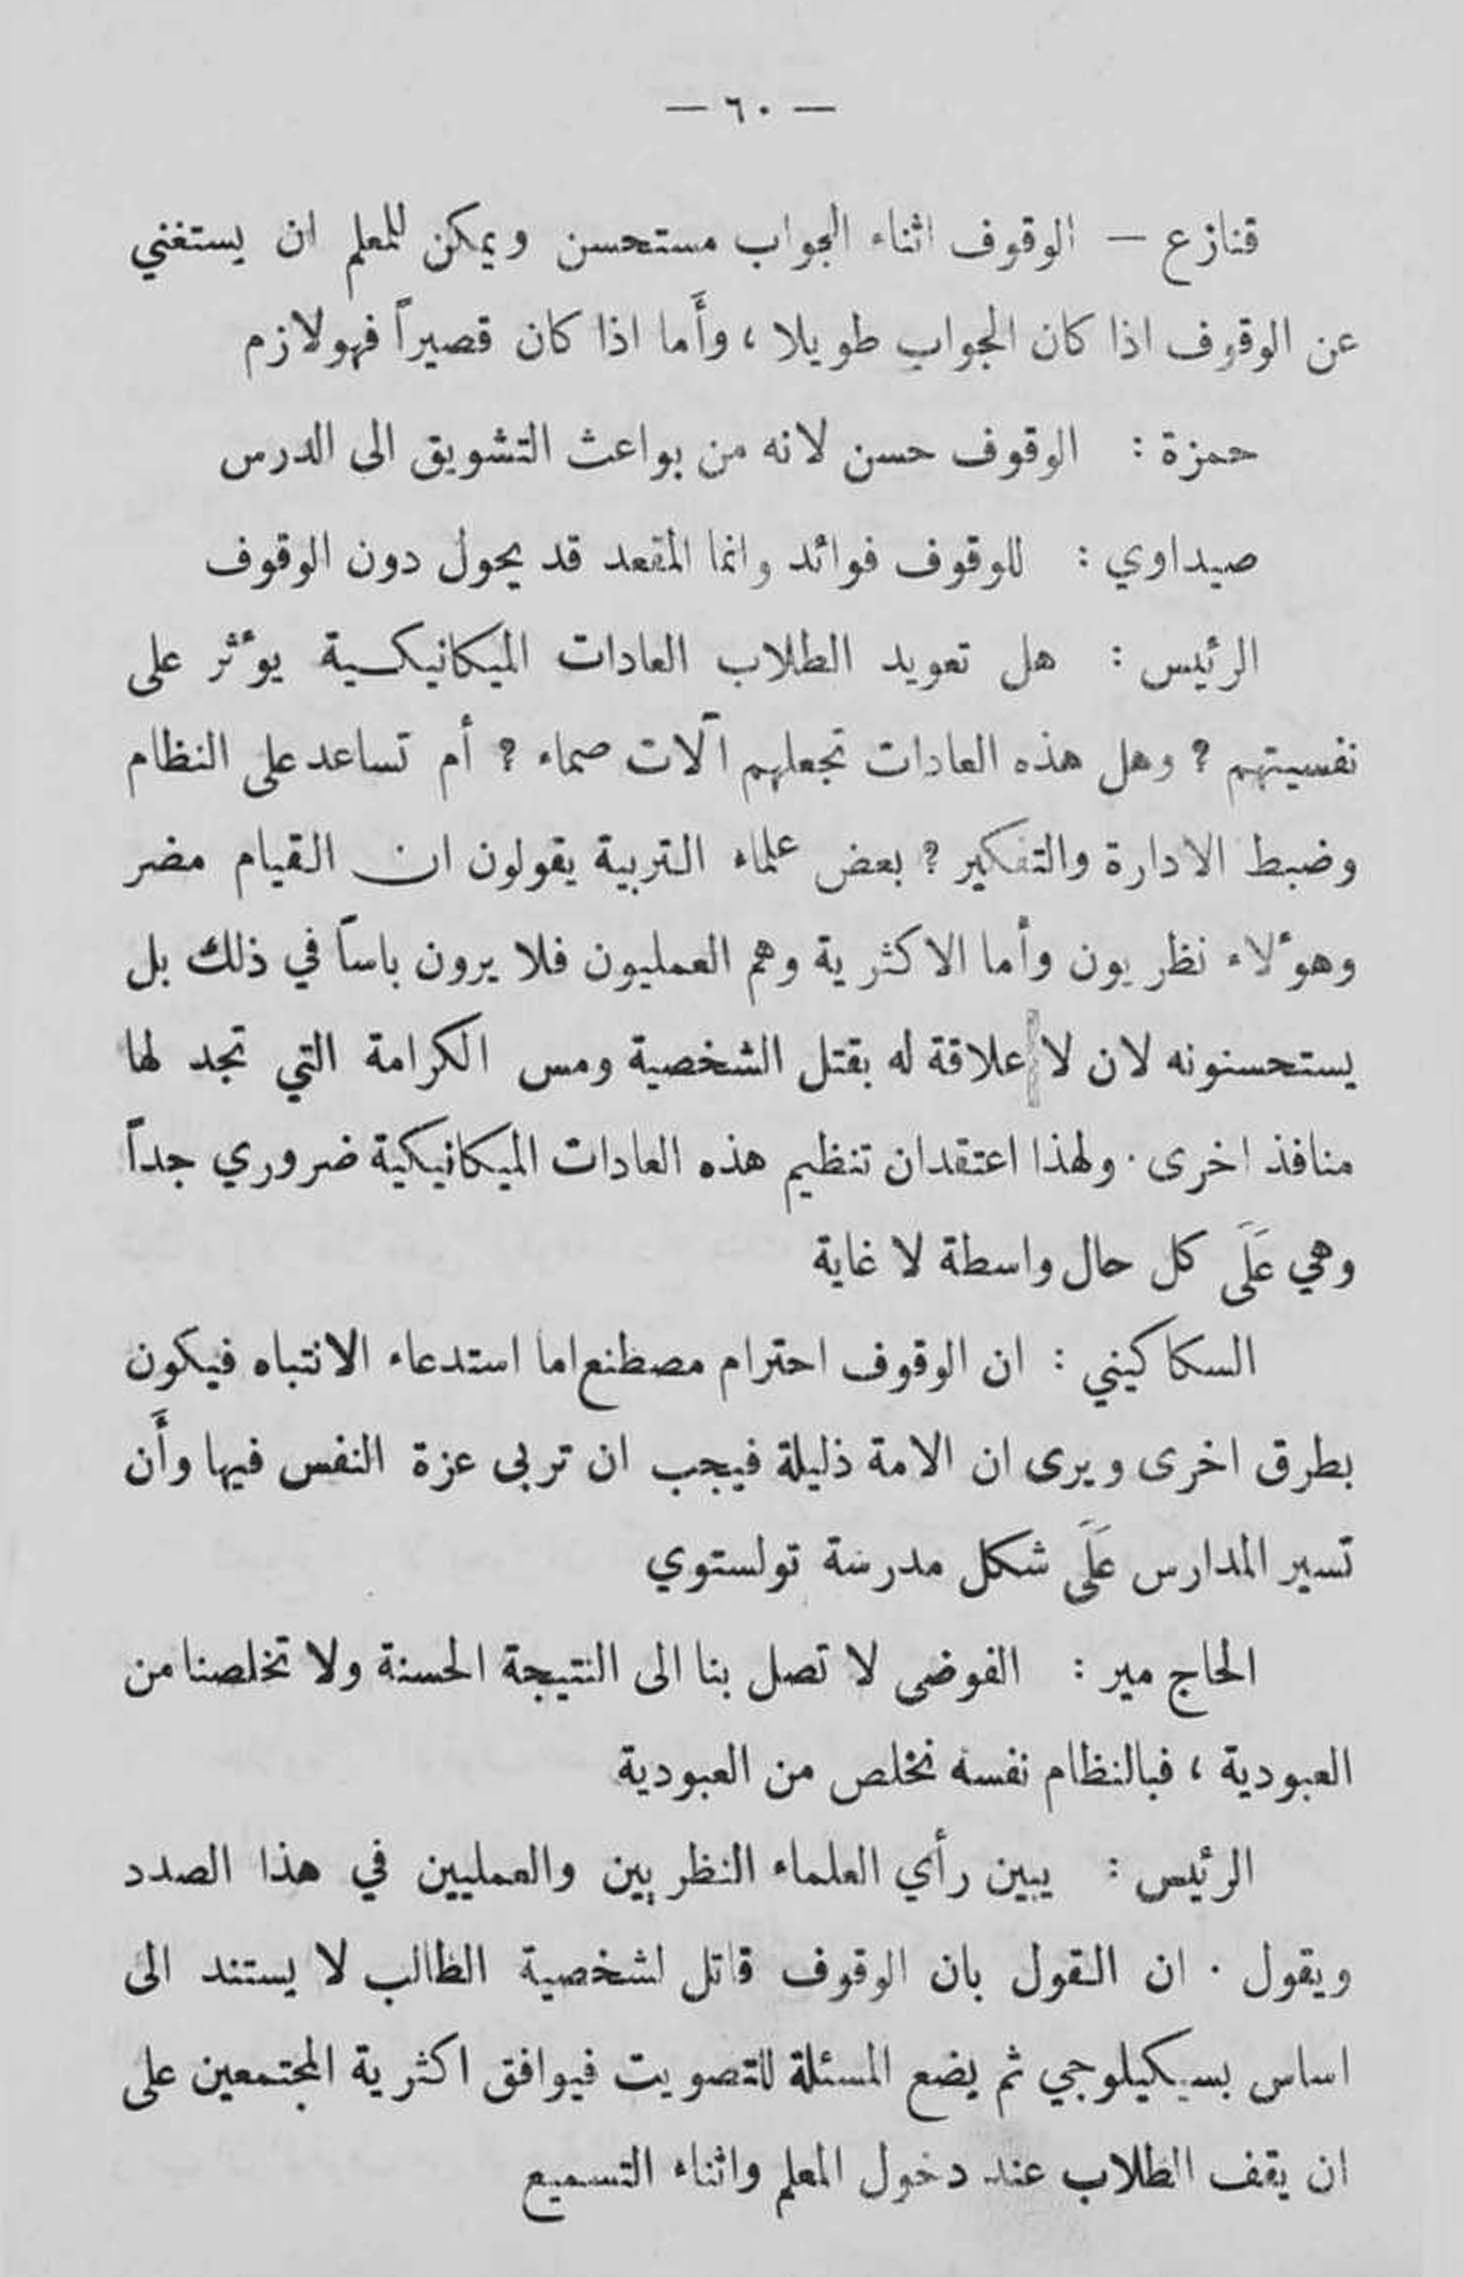 — ٦٠ —
قنازع — الوقوف اثناء الجواب مستحسن ويمكن للمعلم ان يستغني
عن الوقوف اذا كان الجواب طويلا ، وأَما اذا كان قصيراً فهو لازم
حمزة : الوقوف حسن لانه من بواعث التشويق الى الدرس
صيداوي : للوقوف فوائد وانما المقعد قد يحول دون الوقوف
الرئيس : هل تعويد الطلاب العادات الميكانيكية يؤثر على
نفسيتهم ؟ وهل هذه العادات تجعلهم آلات صماء ؟ أم تساعد على النظام
وضبط الادارة والتفكير ؟ بعض علماء التربية يقولون ان القيام مضر
وهؤلاء نظريون وأما الاكثرية وهم العمليون فلا يرون باساً في ذلك بل
يستحسنونه لان لا علاقة له بقتل الشخصية ومس الكرامة التي تجد لها
منافذ اخرى . ولهذا اعتقد ان تنظيم هذه العادات الميكانيكية ضروري جداً
وهي عَلَى كل حال واسطة لا غاية
السكاكيني : ان الوقوف احترام مصطنع اما استدعاء الانتباه فيكون
بطرق اخرى ويرى ان الامة ذليلة فيجب ان تربى عزة النفس فيها وأَن
تسير المدارس عَلَى شكل مدرسة تولستوي
الحاج مير : الفوضى لا تصل بنا الى النتيجة الحسنة ولا تخلصنا من
العبودية ، فبالنظام نفسه نخلص من العبودية
الرئيس : يبين رأي العلماء النظريين والعمليين في هذا الصدد
ويقول . ان القول بان الوقوف قاتل لشخصية الطالب لا يستند الى
اساس بسيكيلوجي ثم يضع المسئلة للتصويت فيوافق اكثرية المجتمعين على
ان يقف الطلاب عند دخول المعلم واثناء التسميع